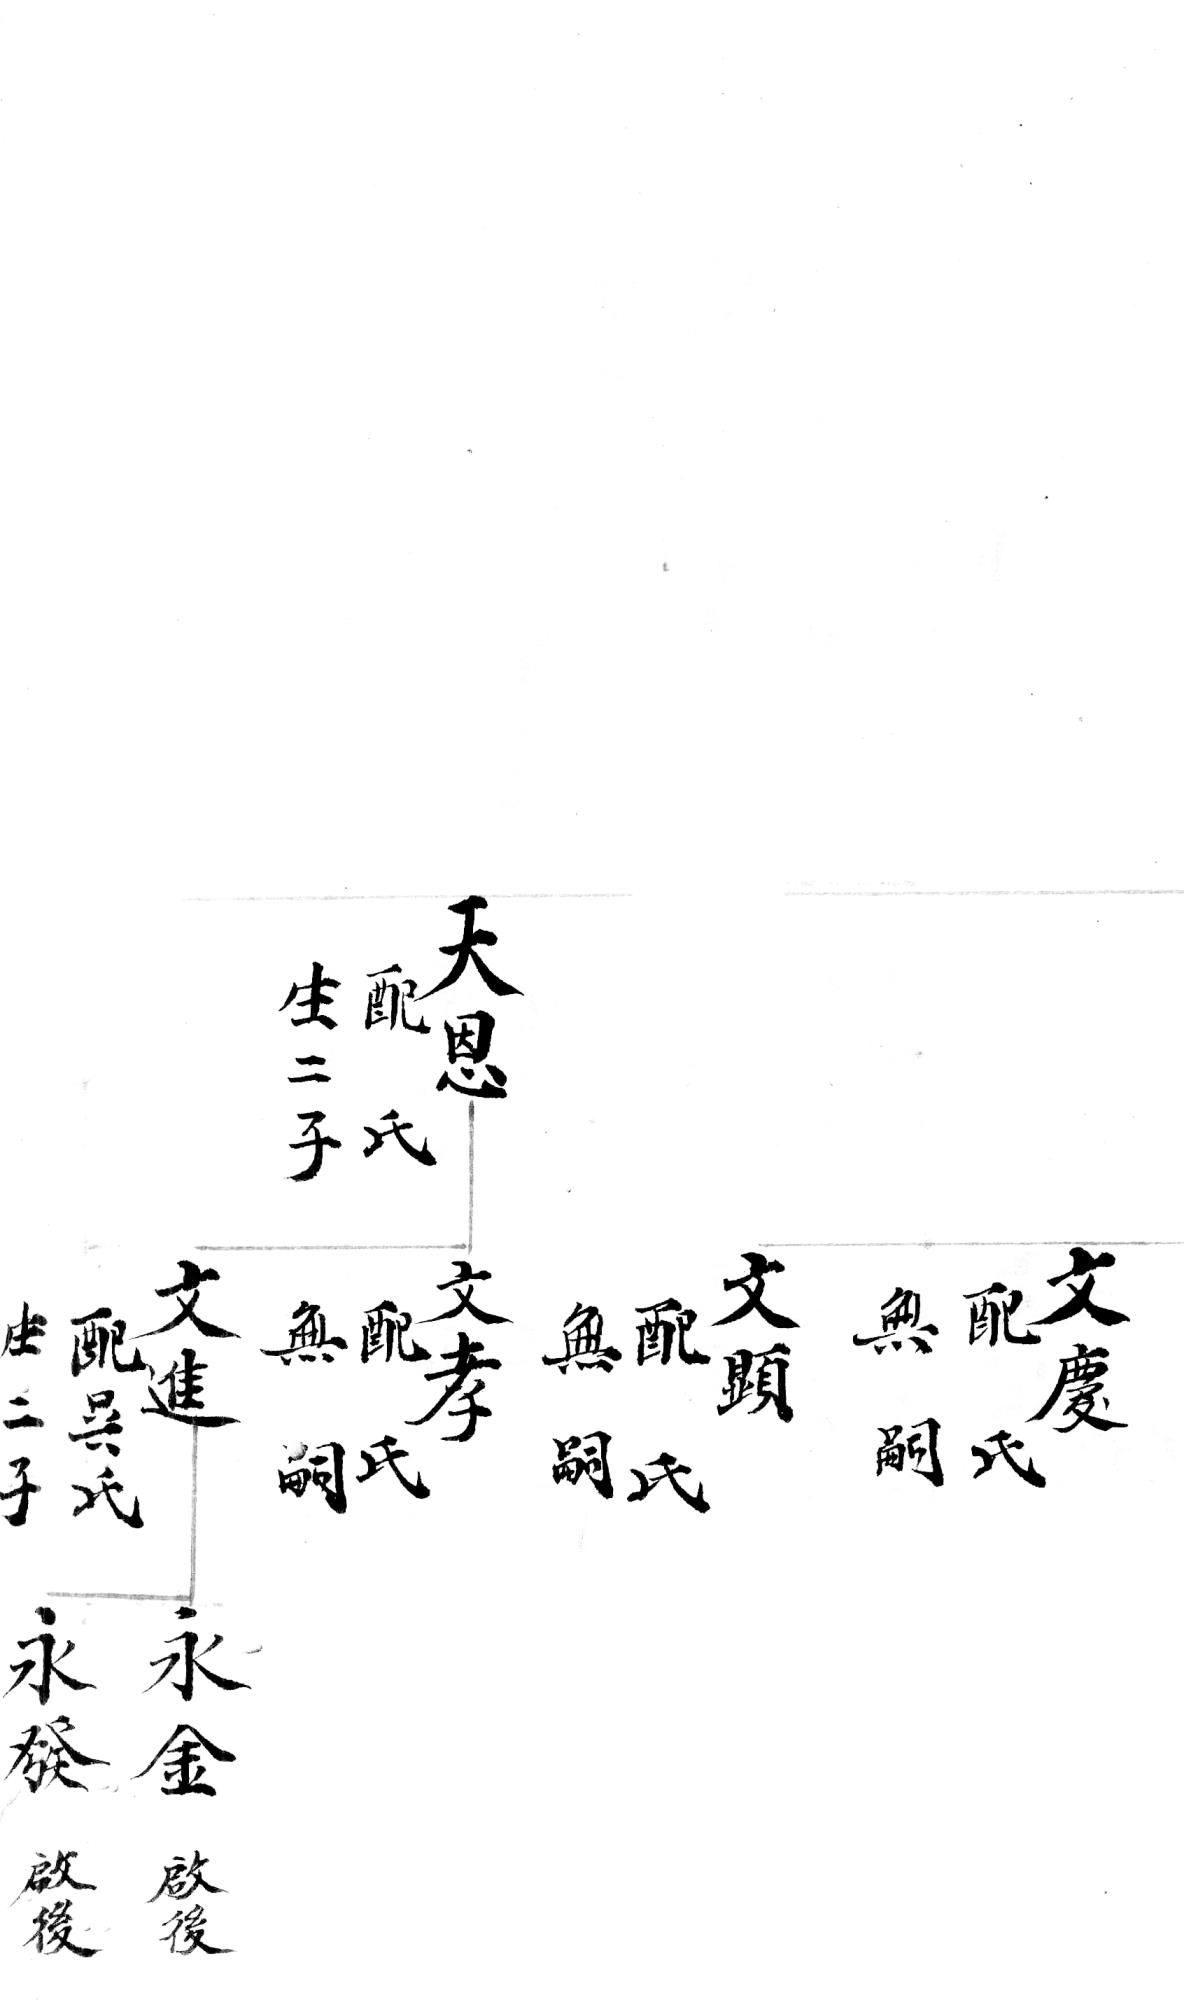 天恩
配 氏
生二子
文慶
配 氏
無嗣
文顕
配 氏
無嗣
文孝
配 氏
無嗣
文進
配吳氏
生二子
永金
啟後
永發
啟後